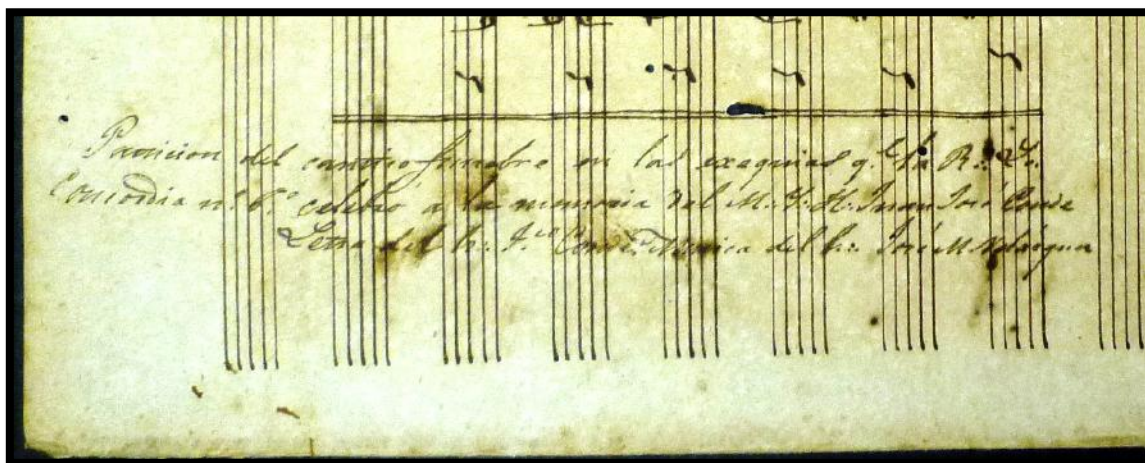 Particion del cantico funebre en las exequias q.e la R.: L.:
Concordia n.º 6.º celebró á la memoria del M. Y. H. Juan José Conde
Letra del h.: J.n Conde. Música del h.: José M.